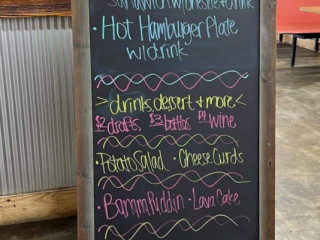 Sandwich w/ cheese & drink
· Hot Hamburger Plate
w/ drink
> drinks, dessert & more <
$2 drafts $3 bottles $4 wine
· Potato Salad · Cheese Curds
· Banana Puddin · Lava Cake